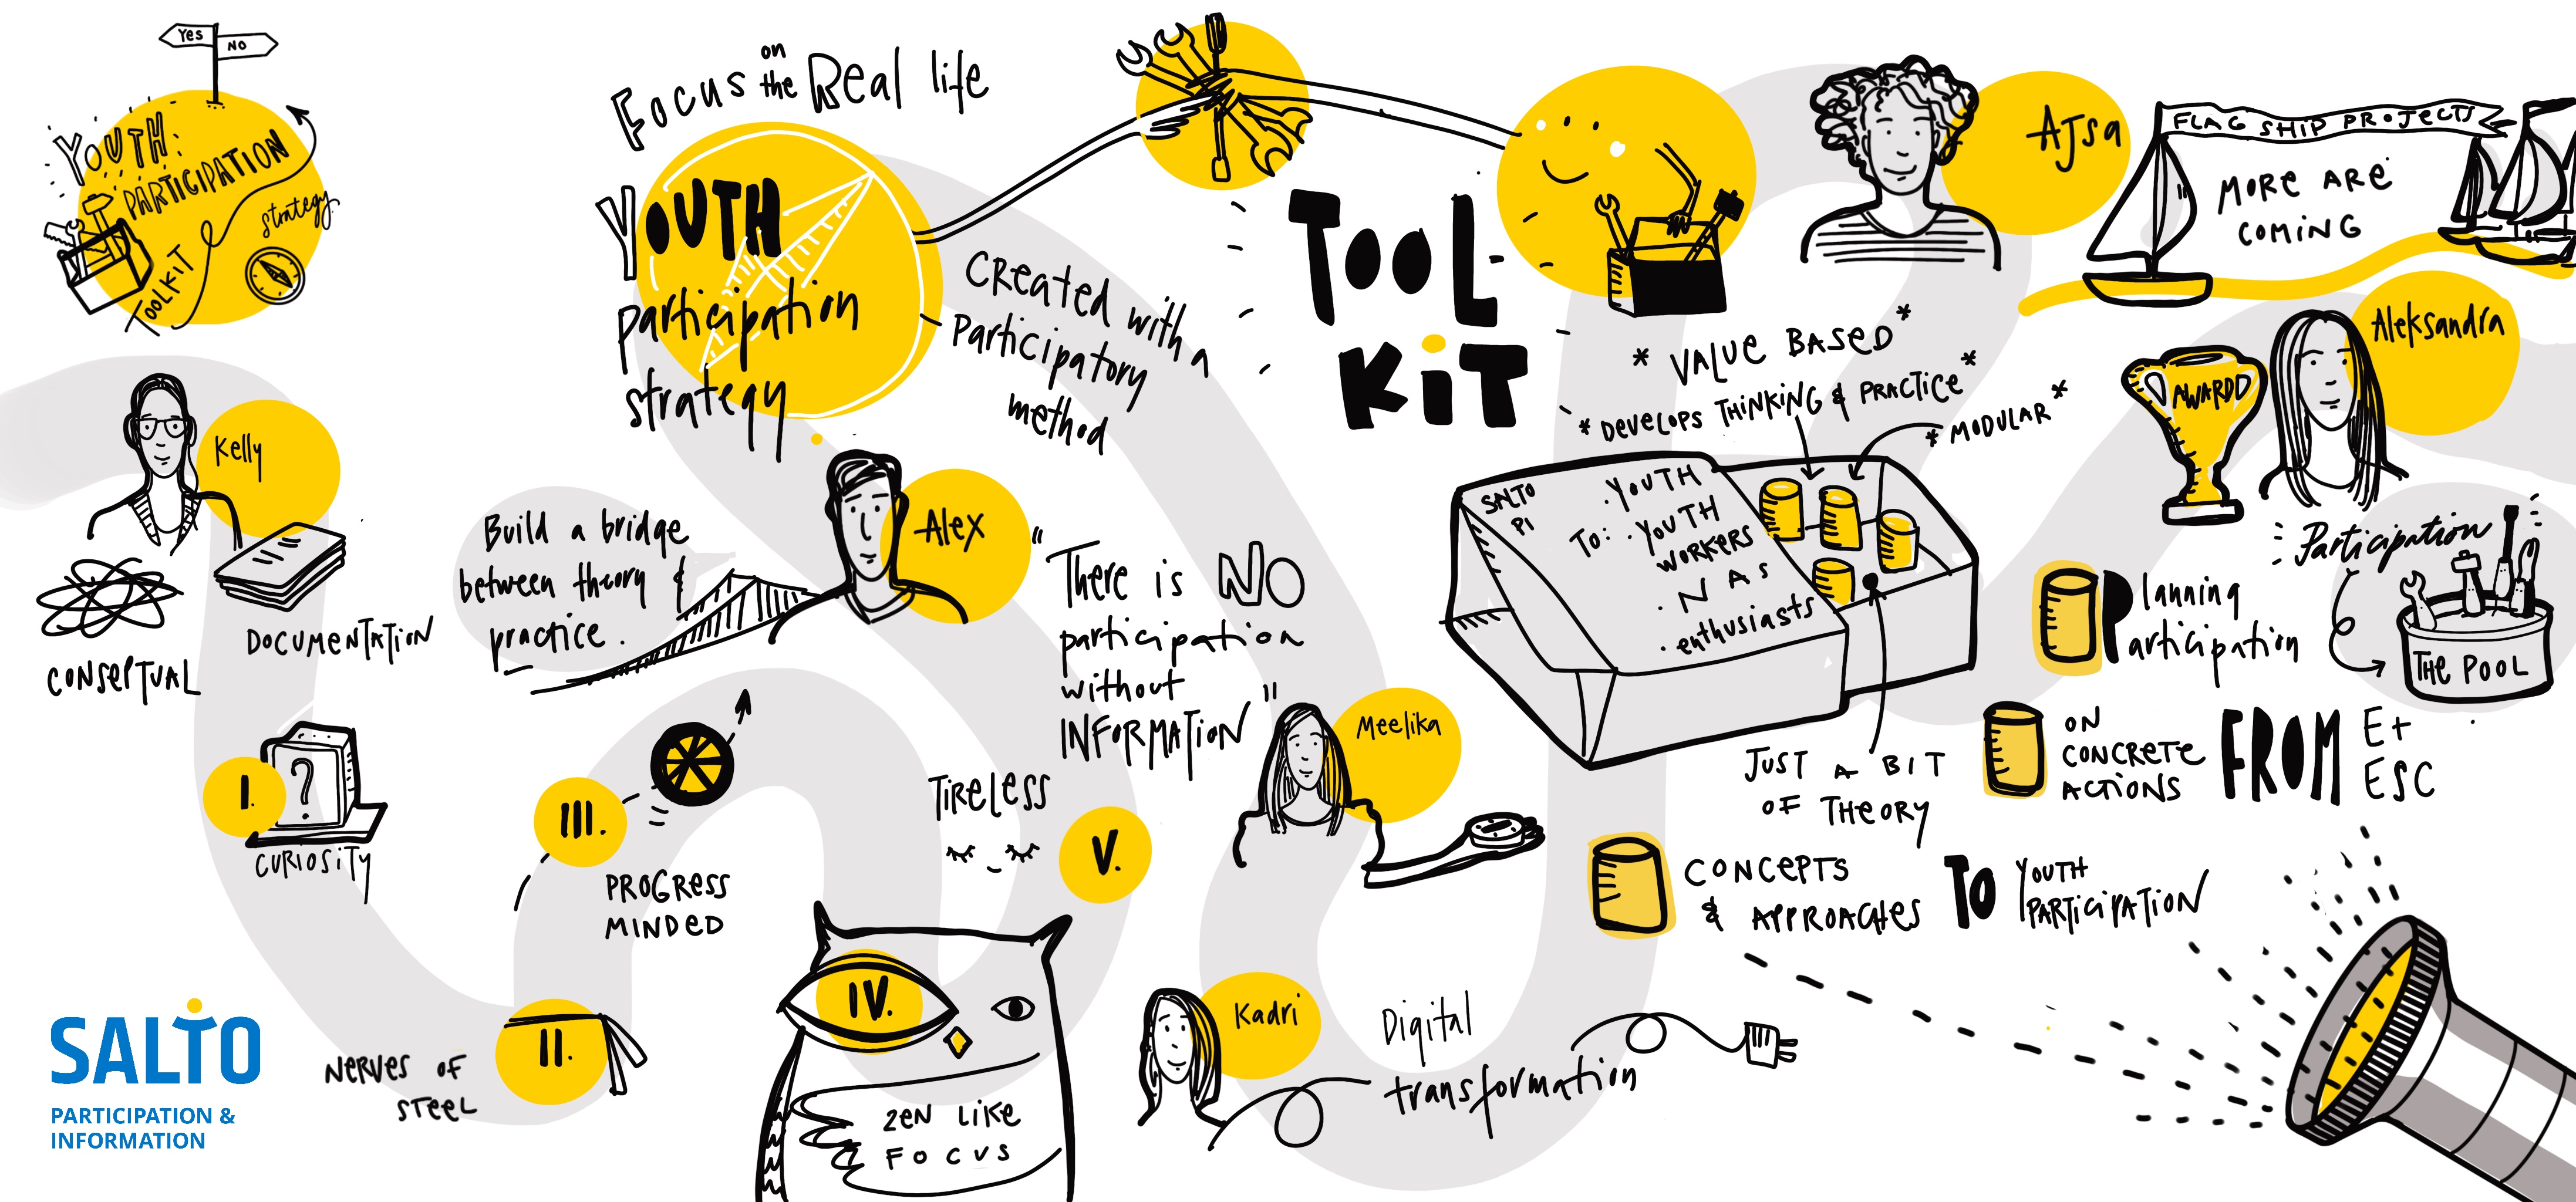 Yes
NO
YOUTH:
PARTICIPATION
strategy
TOOLKIT
Kelly
DOCUMENTATION
CONSEPTUAL
I.
?
CURIOSITY
SALTO
PARTICIPATION &
INFORMATION
NERVES OF
STEEL
II.
III.
PROGRESS
MINDED
Focus on the Real life
YOUTH
participation
strategy
CReated with a
Participatory
method
Build a bridge
between theory &
practice.
Alex
"There is NO
participation
without
INFORMATION"
TiReLess
V.
IV.
ZEN LIKE
FOCUS
Meelika
Kadri
Digital
transformation
TOOL-
KiT
* VALUE BASED *
* DEVELOPS THINKING & PRACTICE *
* MODULAR *
SALTO
PI
TO:
. YOUTH
. YOUTH
WORKERS
. N A s
. enthusiasts
JUST A BIT
OF THEORY
CONCEPTS
& APPROACHES
TO
YOUTH
PARTICIPATION
AJsa
FLAG SHIP PROJECTS
MORE ARE
COMING
Aleksandra
AWARD
Participation
THE POOL
Planning
Participation
ON
CONCRETE
ACTIONS
FROM
E+
ESC